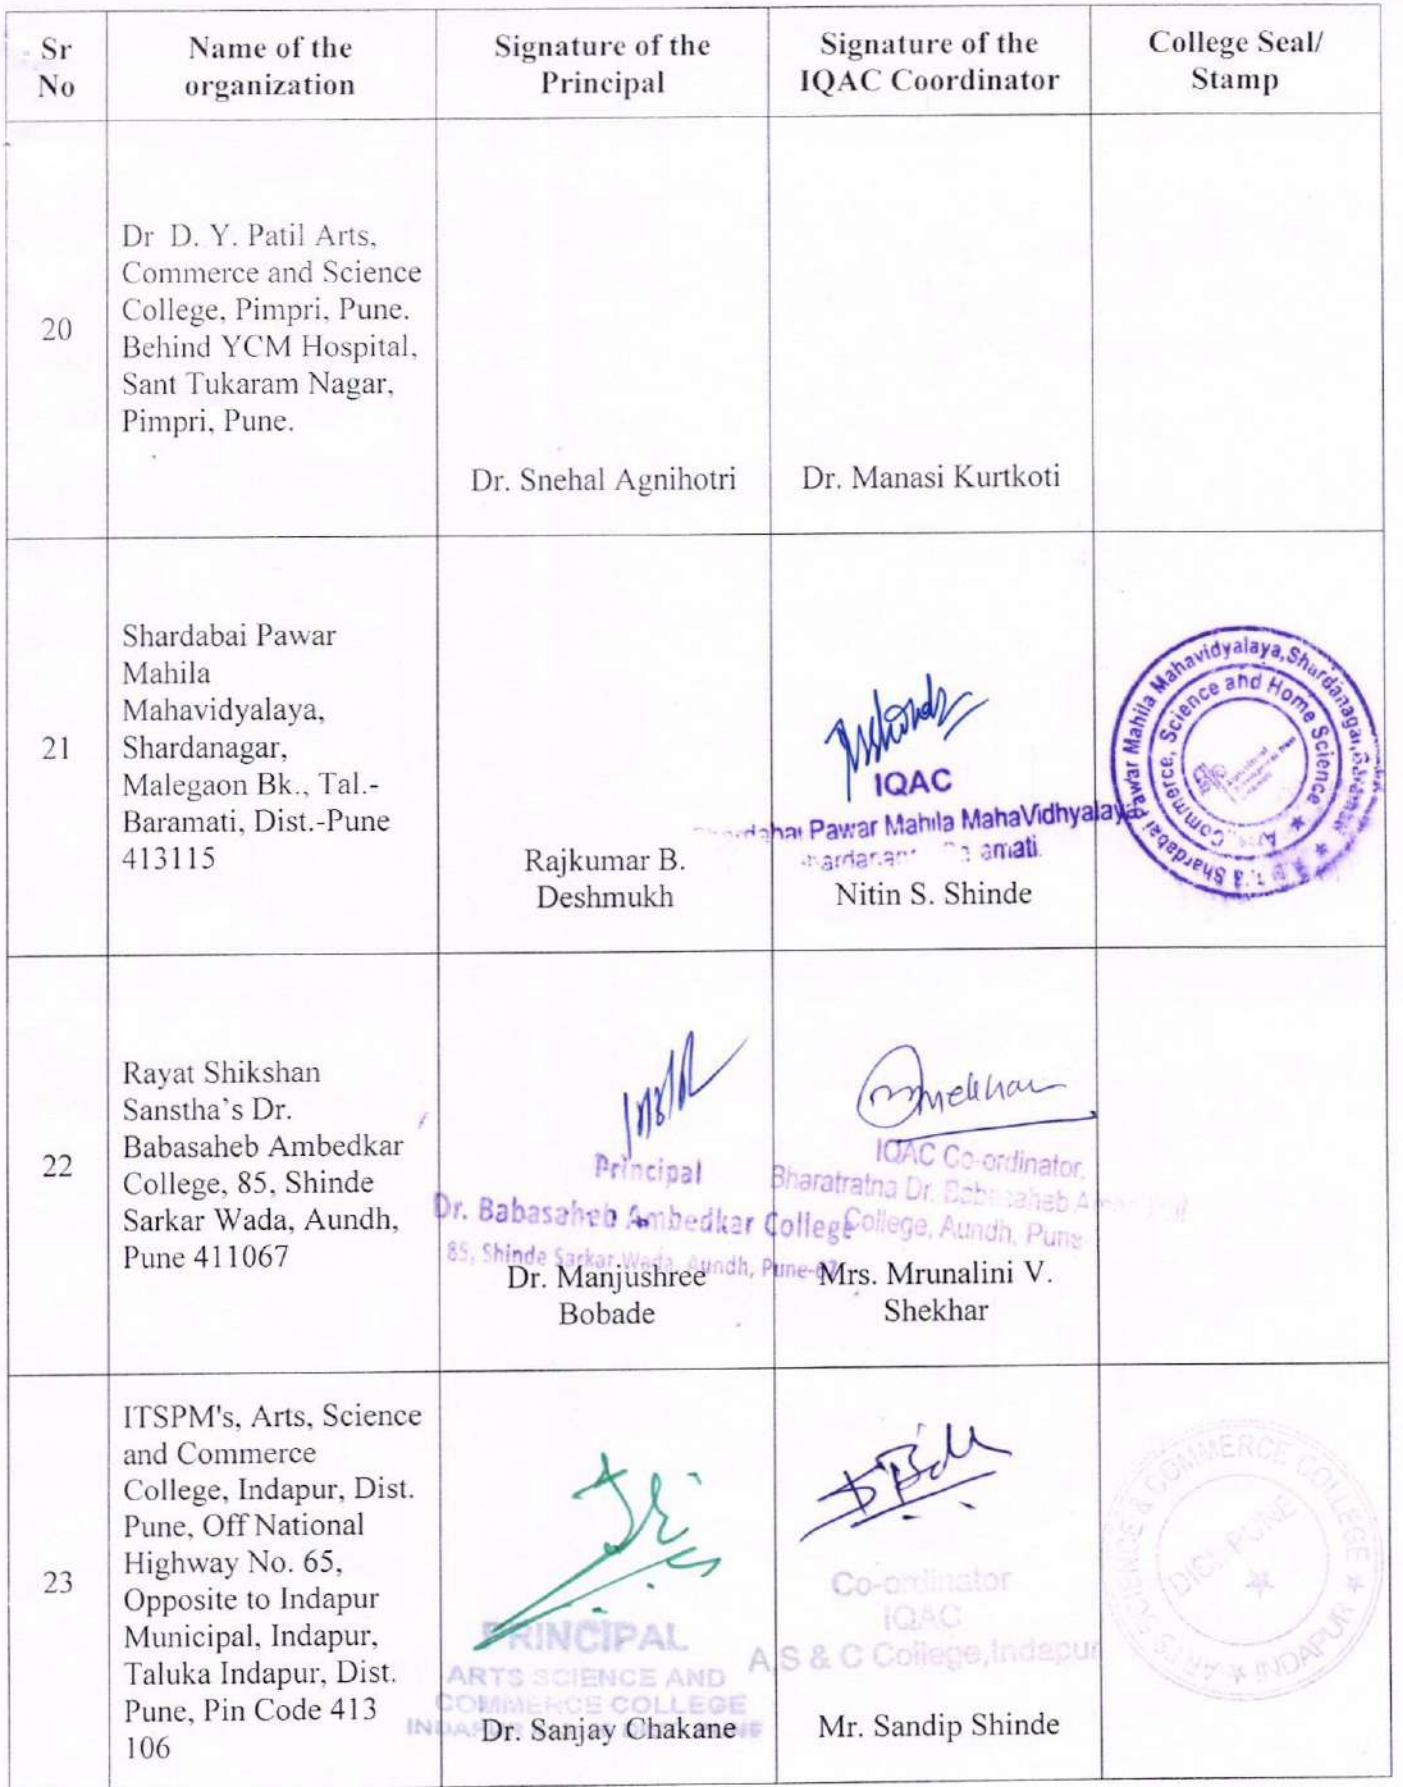 Sr No
Name of the organization
Signature of the Principal
Signature of the IQAC Coordinator
College Seal/ Stamp
20
Dr D. Y. Patil Arts,
Commerce and Science
College, Pimpri, Pune.
Behind YCM Hospital,
Sant Tukaram Nagar,
Pimpri, Pune.
Dr. Snehal Agnihotri
Dr. Manasi Kurtkoti
21
Shardabai Pawar
Mahila
Mahavidyalaya,
Shardanagar,
Malegaon Bk., Tal.-
Baramati, Dist.-Pune
413115
Rajkumar B.
Deshmukh
IQAC
Pawar Mahila MahaVidhyalaya
Nitin S. Shinde
Shardabai Pawar Mahila Mahavidyalaya, Shardanagar,
Commerce, Science and Home Science
22
Rayat Shikshan
Sanstha's Dr.
Babasaheb Ambedkar
College, 85, Shinde
Sarkar Wada, Aundh,
Pune 411067
Principal
Dr. Babasaheb Ambedkar College
85, Shinde Sarkar Wada, Aundh, Pune-67
Dr. Manjushree
Bobade
Shekhar
IQAC Co-ordinator,
Bharatratna Dr. Babasaheb
College, Aundh, Pune
Mrs. Mrunalini V.
Shekhar
23
ITSPM's, Arts, Science
and Commerce
College, Indapur, Dist.
Pune, Off National
Highway No. 65,
Opposite to Indapur
Municipal, Indapur,
Taluka Indapur, Dist.
Pune, Pin Code 413
106
PRINCIPAL
ARTS SCIENCE AND
COMMERCE COLLEGE
Dr. Sanjay Chakane
Co-ordinator
IQAC
A,S & C College,Indapur
Mr. Sandip Shinde
ARTS SCIENCE & COMMERCE COLLEGE ★ INDAPUR ★
DIST. PUNE